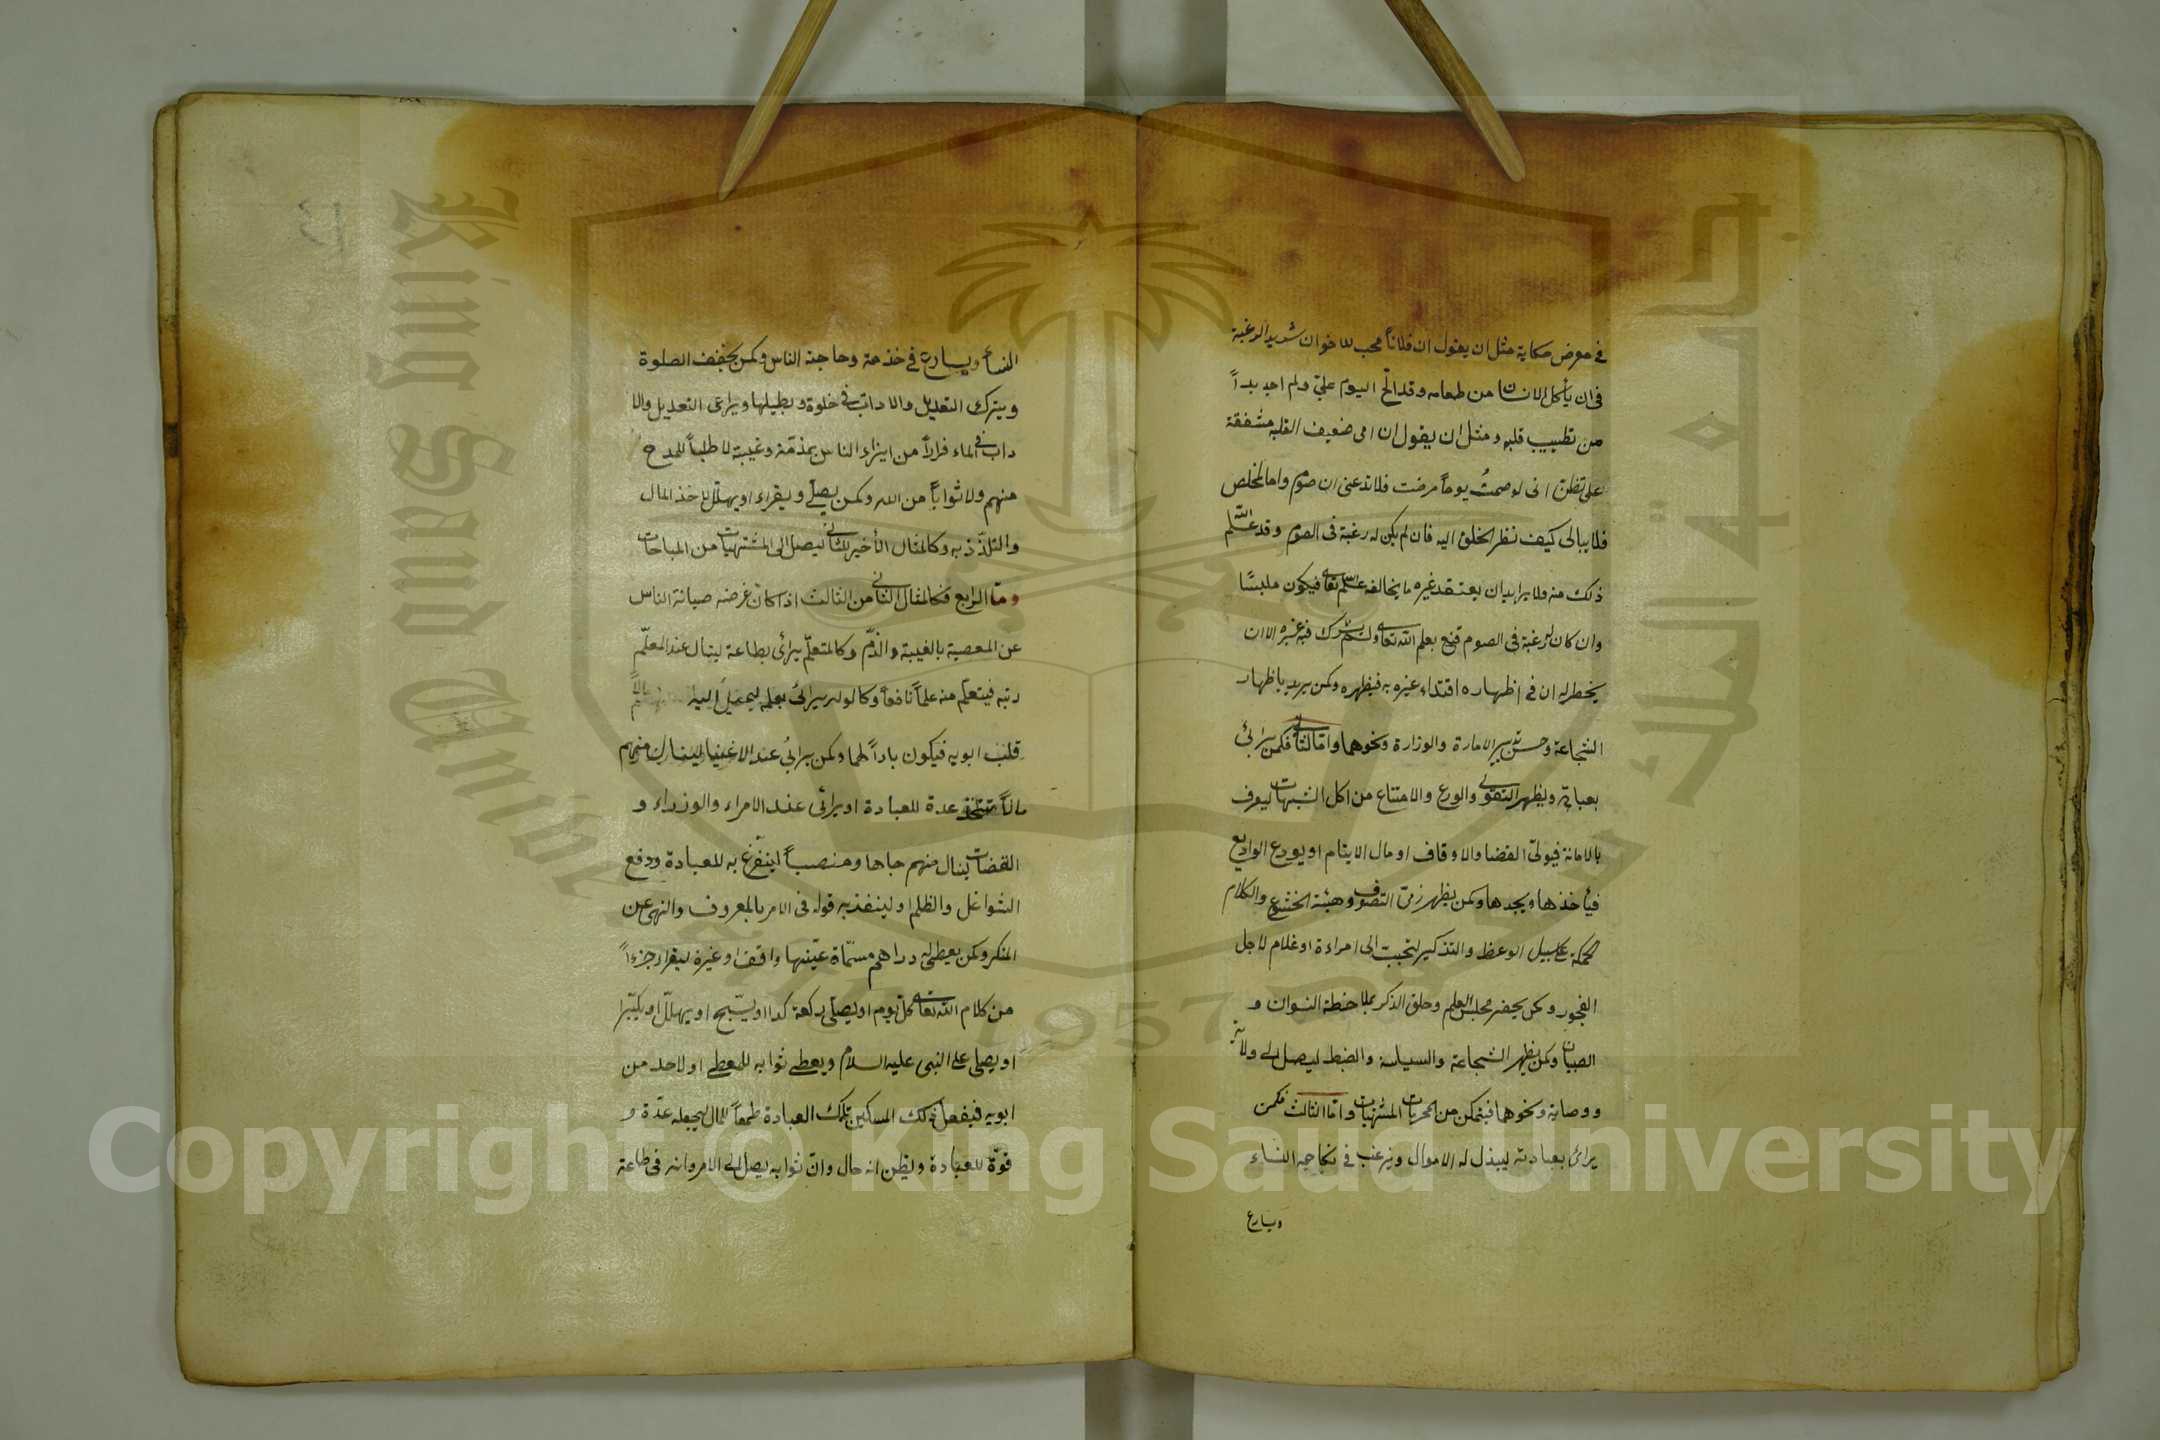 في معرض حكاية مثل ان يقول ان فلاناً محب للاخوان شديد الرغبة
في ان يأكل الانسان من طعامه وقد الحّ اليوم عليّ ولم اجد بداً
من تطييب قلبه ومثل ان يقول ان امى ضعيف القلبه مشفقة
على تظن انى لو صمتُ يوماً مرضت فلا تدعنى ان صوم واما المخلص
فلا يبالى كيف نظر الخلق اليه فان لم يكن له رغبة فى الصوم وقد علم الله
ذلك منه فلا يريد ان يعتقد غيره ما يخالف علم الله تعالى فيكون ملبسًا
وان كان له رغبة فى الصوم قنع بعلم الله تعالى ولم يشرك فيه غيره الا ان
يخطر له ان فى اظهاره اقتداء غيره به فيظهره وكمن يريد باظهار
الشجاعة وحسن تدبير الامارة والوزارة ونحوهما واما الثانى فكمن يرائى
بعباداته ويظهر التقوى والورع والامتناع من اكل الشبهات ليعرف
بالامانة فيولىّ القضا والاوقاف او مال الايتام او يودع الودايع
فيأخذها ويجدها وكمن يظهر زىّ التصوف وهيئة الخشوع والكلام
الحكمة على سبيل الوعظ والتذكير لتحبب الى امراءة او غلام لاجل
الفجور وكمن يحضر مجلس العلم وحلق الذكر بملاحظة النسوان و
الصبيان وكمن يظهر الشجاعة والسياسة والضبط ليصل الى ولاية
ووصاية ونحوهما فيتمكن من المحرمات المشتهيات واما الثالث فكمن
يرائى بعبادته ليبذل له الاموال ويرغب فى نكاحه النساء
ويسارع
النسأ ويسارع فى خذمة وحاجته الناس وكمن يخفف الصلوة
ويترك التعديل والاداب فى خلوة ويطيلها ويراعى التعديل والا
داب فى الملاء فراراً من ايذاء الناس بمذمّة وغيبة لا طلباً للمدح
منهم ولا ثواباً من الله وكمن يصلّى ويقراء او يهلّل لاخذ المال
والتلذّذ به وكالمثال الأخير للثانى ليصل الى المشتهيات من المباحات
وما الرابع فكالمثال الثانى من الثالث اذا كان غرضه صيانة الناس
عن المعصية بالغيبة والذّم وكالمتعلّم يرائى بطاعة لينال عند المعلّم
رتبه فيتعلّم منه علماً نافعاً وكالولد يرائى بعلمه ليميل اليه
قلب ابويه فيكون باراً لهما وكمن يرائى عند الاغنيا لينال منهم
مالاً عدة للعبادة او يرائى عند الامراء والوزراء و
القضات لينال منهم جاها ومنصباً ليتفرغ به للعبادة ودفع
الشواغل والظلم او لينفذ به قوله فى الامر بالمعروف والنهى عن
المنكر وكمن يعطى له دراهم مسمّاة عيّنها واقف او غيره ليقراء جزءاً
من كلام الله تعالى كل يوم او يصلّى ركعة كدا او يسبّح او يهلّل او يكبّر
او يصلى على النبى عليه السلام ويعطى ثوابه للمعطى او لاحد من
ابويه فيفعل ذلك المسكين تلك العبادة طمعاً للمال ليجعله عدّة و
قوّة للعبادة ويظن انه حال وانّ ثوابه يصل الى الامر وانه فى طاعة
King Saud University
جامعة الملك سعود
1957
Copyright © King Saud University